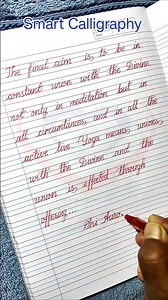 Smart Calligraphy
The final aim is, to be in
constant union with the Divine
not only in meditation but in
all circumstances and in all the
active live. Yoga means, unions,
with the Divine and the
union is, effected through
offering...
Sri Auro